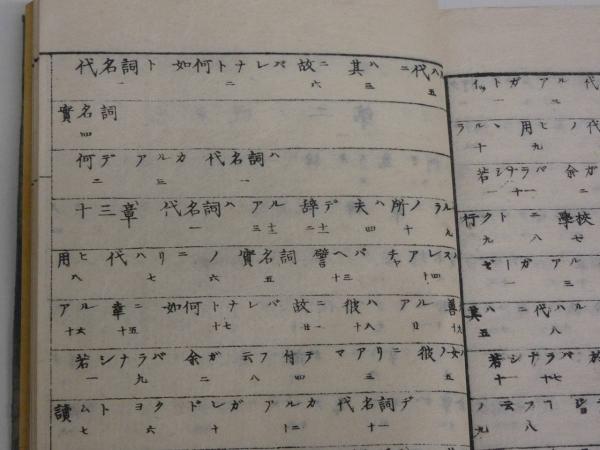 代名詞ト 如何トナレバ故ニ 其ハ ニ代ハ
一 二 六 三 五
實名詞
四
何デ アルカ 代名詞ハ
二 三 一
十三章 代名詞ハ アル 辞デ 夫ハ 所ノ ラル
一 三 二 四 十 九
用ヒ 代ハリニ ノ 實名詞 譬ヘバ チャアレス
八 七 六 五 十三 十四
アル 幸ニ 如何トナレバ 故ニ 彼ハ アル 善
十六 十五 十七 十八
若シナラバ 余ガ 云フ 付テ マリアニ 彼ノ女ノ
一 九 二 八 四 三 五
讀ム ト ヨク ドレガ アルカ 代名詞デ
七 六 十 十二 十一
イットガ アル 代
一 三 二
ラル 用ヒ ノ代
十 九
若シナラバ 余ガ
一 十一 二
行クト ニ 學校
九 八 七
ゼーガ アル
一 三
其ハ ニ代ハル
五 八
若シナラバ 於
十一 十七
ノ 云フ
九 八